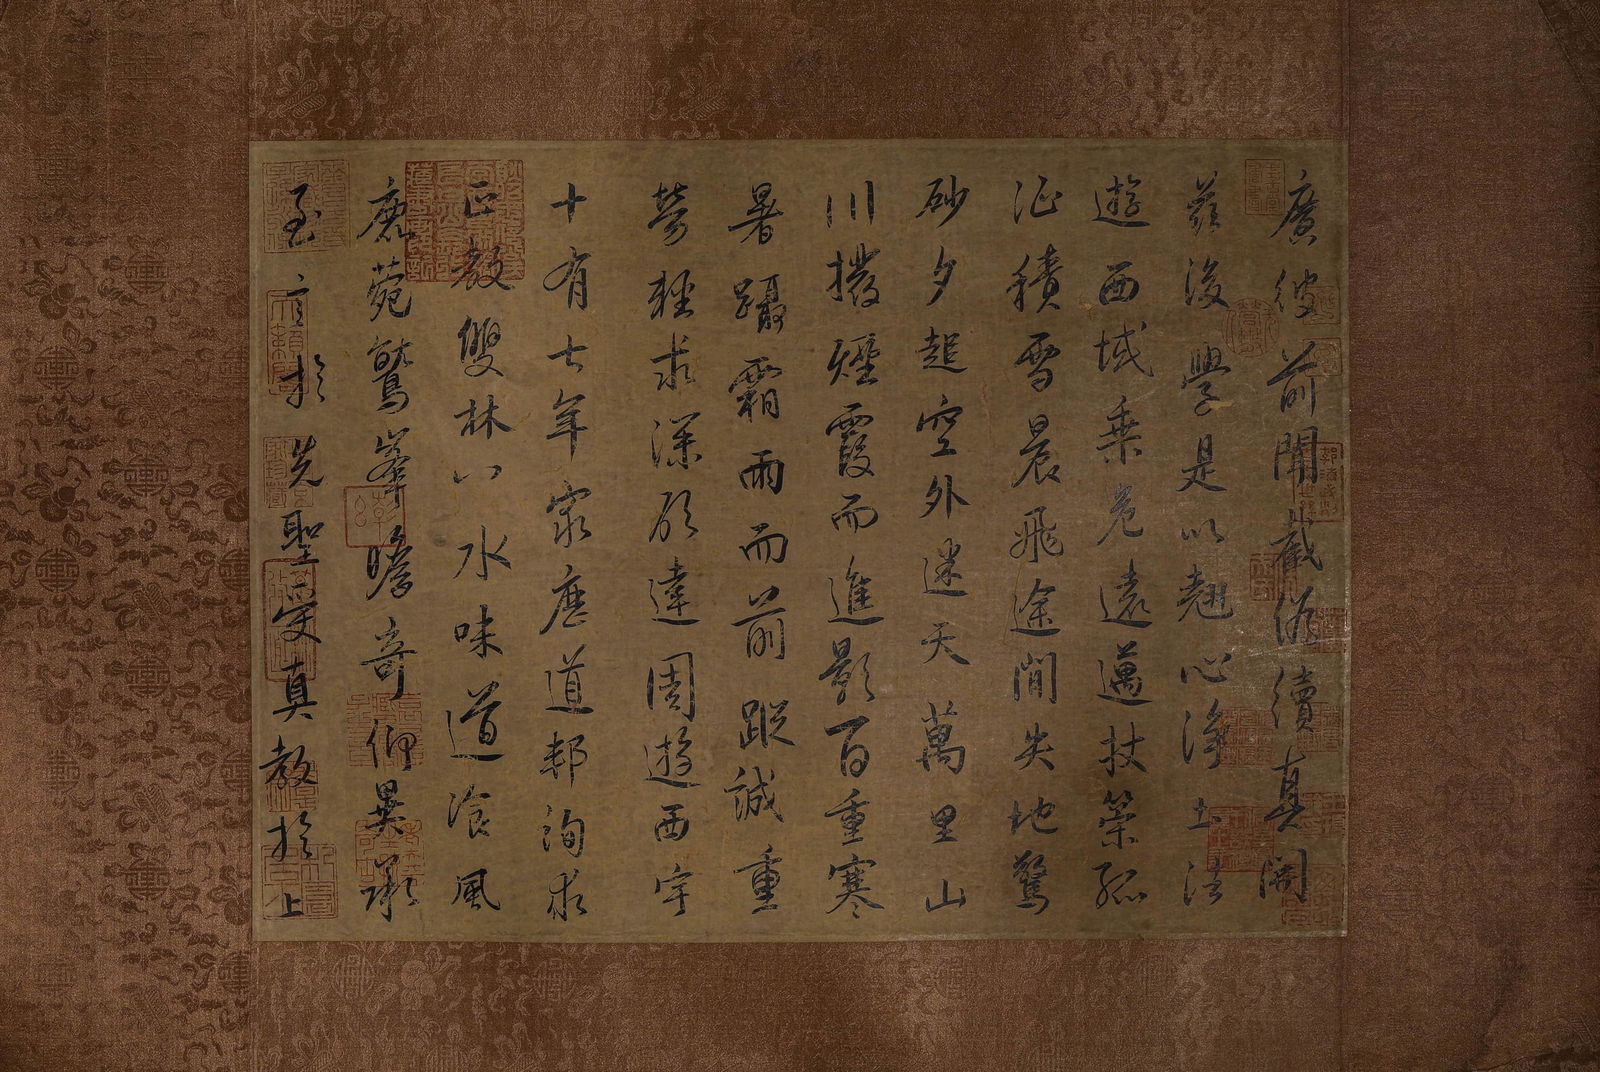 廣彼前聞截偽續真開
茲後學是以翹心淨土法
遊西域乘危遠邁杖策孤
征積雪晨飛途間失地驚
砂夕起空外迷天萬里山
川撥煙霞而進影百重寒
暑躡霜雨而前蹤誠重
勞輕求深願達周遊西宇
十有七年窮歷道邦詢求
正教雙林八水味道湌風
鹿菀鷲峯瞻奇仰異承
至言於先聖受真教於上